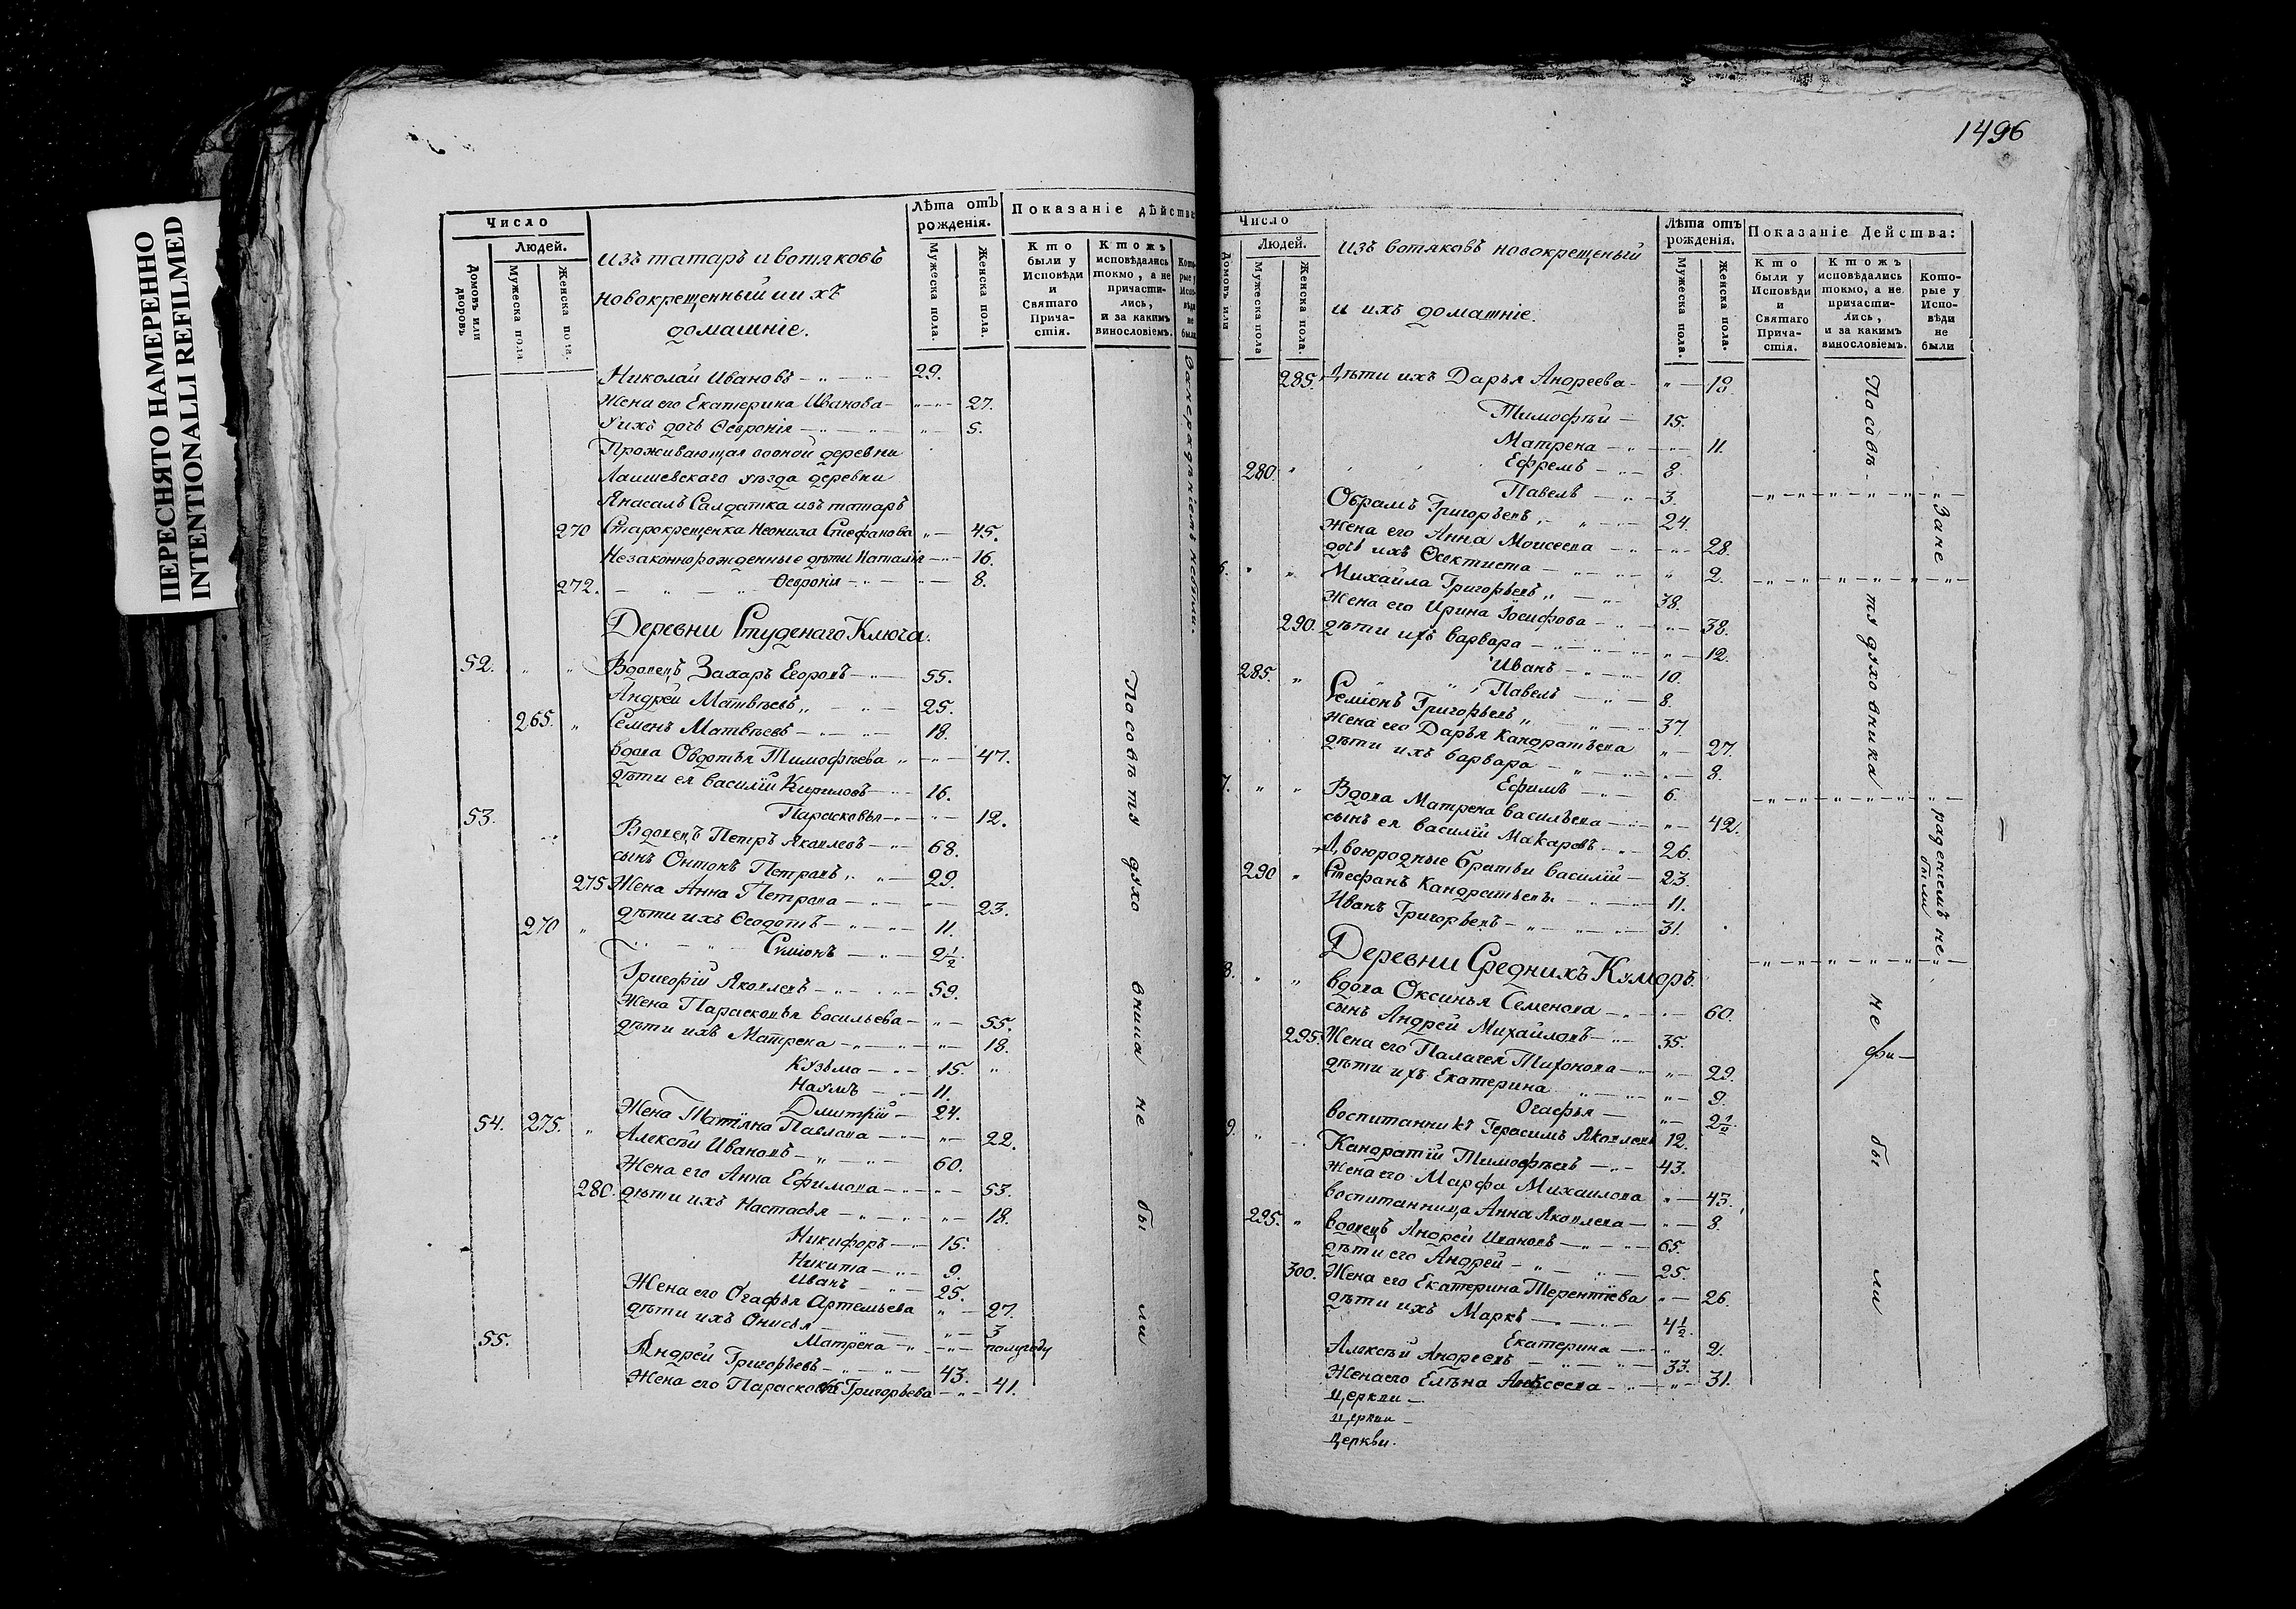 ПЕРЕСНЯТО НАМЕРЕННО
INTENTIONALLI REFILMED
Число
Людей.
Домовъ или дворовъ.
Мужеска пола.
Женска пола.
Изъ татаръ и вотяковъ
новокрещенный и ихъ
домашніе.
Лѣта отъ рожденія.
Мужеска пола.
Женска пола.
Показаніе дѣйства
Кто были у Исповѣди и Святаго Причастія.
Ктожъ исповѣдались токмо, а не причастились, и за какимъ винословіемъ.
Которые у Исповѣди не были
Николай Ивановъ 29.
Жена его Екатерина Иванова 27.
У ихъ дочь Ѳевронія 5.
Проживающая во оной деревни
Лаишевскаго уѣзда деревни
Янасалъ Салдатка изъ татаръ
270 Старокрещенка Неонила Стефанова 45.
Незаконнорожденные дѣти Наталія 16.
272. Ѳевронія 8.
Деревни Студенаго Ключа.
52. Вдовецъ Захаръ Егоровъ 55.
Андрей Матвѣевъ 25.
265. Семенъ Матвѣевъ 18.
вдова Овдотья Тимофѣева 47.
дѣти ея Василій Кириловъ 16.
Парасковья 12.
53. Вдовецъ Петръ Яковлевъ 68.
сынъ Онтонъ Петровъ 29.
275 Жена Анна Петрова 23.
270 дѣти ихъ Ѳеодотъ 11.
Симіонъ 2½
Григорій Яковлевъ 59.
Жена Парасковья Васильева 55.
дѣти ихъ Матрена 18.
Кузьма 15.
Наумъ 11.
Дмитрій 24.
Жена Татіяна Павлова 22.
54. 275. Алексѣй Ивановъ 60.
Жена его Анна Ефимова 53.
280. дѣти ихъ Настасья 18.
Никифоръ 15.
Никита 9.
Иванъ 25.
Жена его Огафья Артемьева 27.
дѣти ихъ Онисья 3
Матрена полугоду
55. Андрей Григорьевъ 43.
Жена его Парасковья Григорьева 41.
По совѣтъ духовника не были
За нерадѣніемъ не были.
1496
Число
Людей.
Домовъ или
Мужеска пола
Женска пола.
Изъ вотяковъ новокрещеный
и ихъ домашніе.
Лѣта отъ рожденія.
Мужеска пола.
Женска пола.
Показаніе Действа:
Кто были у Исповѣди и Святаго Причастія.
Ктожъ исповѣдались токмо, а не причастились, и за какимъ винословіемъ.
Которые у Исповѣди не были
285. Дѣти ихъ Дарья Андреева 18.
Тимофѣй 15.
Матрена 11.
280. Ефремъ 8.
Павелъ 3.
Обрамъ Григорьевъ 24.
Жена его Анна Моисеева 28.
дочь ихъ Ѳеоктиста 2.
6. Михайла Григорьевъ 38.
Жена его Ирина Іосифова 38.
290. дѣти ихъ Варвара 12.
Иванъ 10.
285. Павелъ 8.
Семіонъ Григорьевъ 37.
Жена его Дарья Кандратьева 27.
дѣти ихъ Варвара 8.
Ефимъ 6.
7. Вдова Матрена Васильева 42.
сынъ ея Василій Макаровъ 26.
Двоюродные братьи Василій 23.
290 Стефанъ Кандратьевъ 11.
Иванъ Григорьевъ 31.
Деревни Среднихъ Куморъ.
8. вдова Оксинья Семенова 60.
сынъ Андрей Михайловъ 35.
295. Жена его Палагея Тихонова 29.
дѣти ихъ Екатерина 9.
Огафья 2½.
воспитанникъ Герасимъ Яковлевъ 12.
9. Кандратій Тимофѣевъ 43.
Жена его Марфа Михаилова 43.
воспитанница Анна Яковлева 8.
295. вдовецъ Андрей Ивановъ 65.
дѣти его Андрей 25.
300. Жена его Екатерина Терентіева 26.
дѣти ихъ Маркъ 4½.
Екатерина 2.
Алексѣй Андреевъ 33.
Жена его Елѣна Алексеева 31.
Церкви
Церкви
Церкви.
По совѣтъ духовника не бы ли
За не радениемъ не были